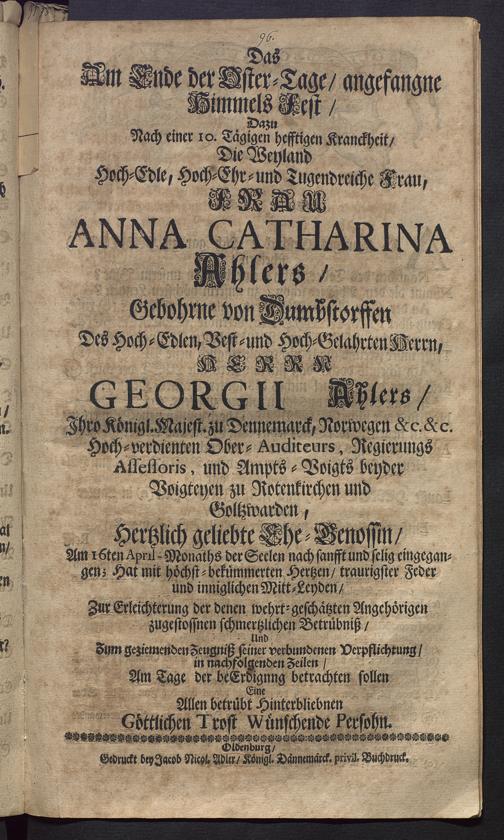 96.
Das
Am Ende der Oster-Tage/ angefangne
Himmels Fest/
Dazu
Nach einer 10. Tägigen hefftigen Kranckheit/
Die Weyland
Hoch-Edle, Hoch-Ehr- und Tugendreiche Frau,
FRAU
ANNA CATHARINA
Ahlers/
Gebohrne von Dumbstorffen
Des Hoch-Edlen, Vest- und Hoch-Gelahrten Herrn,
HERRN
GEORGII Ahlers/
Ihro Königl. Majest. zu Dennemarck, Norwegen &c. &c.
Hoch-verdienten Ober-Auditeurs, Regierungs
Assessoris, und Ampts-Voigts beyder
Voigteyen zu Rotenkirchen und
Goltzwarden,
Hertzlich geliebte Ehe-Genossin/
Am 16ten April-Monaths der Seelen nach sanfft und selig eingegan-
gen; Hat mit höchst-bekümmerten Hertzen/ traurigster Feder
und inniglichen Mitt-Leyden/
Zur Erleichterung der denen wehrt-geschätzten Angehörigen
zugestossnen schmertzlichen Betrübniß/
Und
Zum geziemenden Zeugniß seiner verbundenen Verpflichtung/
in nachfolgenden Zeilen/
Am Tage der beErdignng betrachten sollen
Eine
Allen betrübt Hinterbliebnen
Göttlichen Trost Wünschende Persohn.
Oldenburg/
Gedruckt bey Jacob Nicol. Adler/ Königl. Dännemärck. privil. Buchdruck.